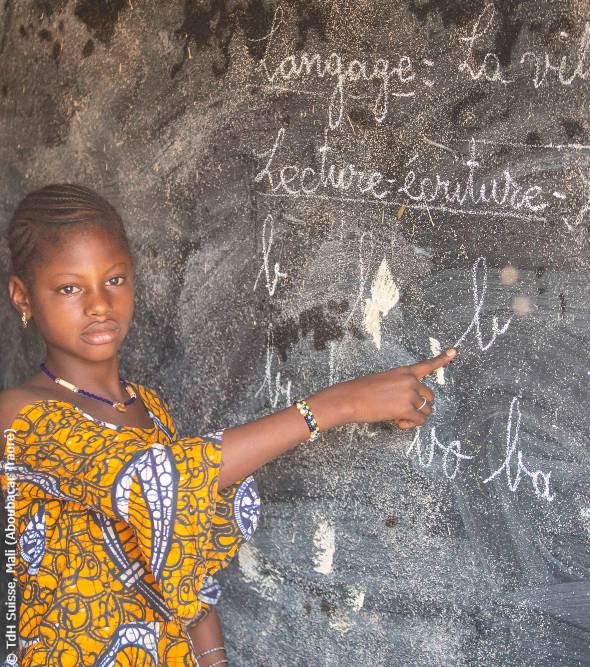 Langage: La vil
Lecture-écriture-
b
b
vo ba
© TdH Suisse, Mali (Aboubacar Traoré)